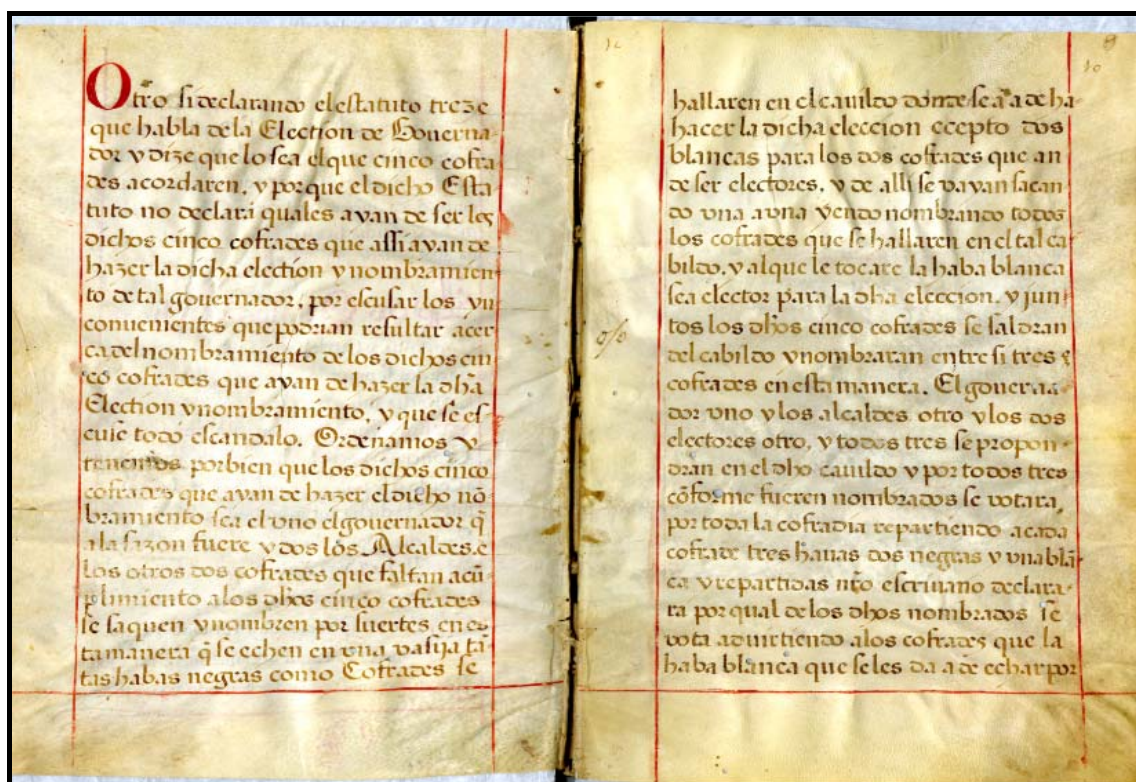 Otro si declarando el estatuto treze
que habla de la Election de Governa-
dor y dize que lo sea el que cinco cofra
des acordaren, y por que el dicho Esta-
tuto no declara quales ayan de ser los
dichos cinco cofrades que assi ayan de
hazer la dicha election y nombramien
to de tal gouernador, por escusar los yn
convenientes que podrian resultar acer
ca del nombramiento de los dichos cin
co cofrades que ayan de hazer la dha
Election y nombramiento, y que se es
cuse todo escandalo. Ordenamos y
tenemos por bien que los dichos cinco
cofrades que ayan de hazer el dicho nō
bramiento sea el uno el gouernador q̄
a la sazon fuere y dos los Alcaldes, e
los otros dos cofrades que faltan a cū
plimiento a los dhos cinco cofrades
se saquen y nombren por suertes en es
ta manera q̄ se echen en vna vasija tā
tas habas negras como Cofrades se
12
8
10
hallaren en el cauildo donde se a a de ha
hacer la dicha eleccion ecepto dos
blancas para los dos cofrades que an
de ser electores, y de alli se vayan sacan
do vna a vna yendo nombrando todos
los cofrades que se hallaren en el tal ca
bildo, y al que le tocare la haba blanca
sea elector para la dha eleccion, y jun
tos los dhos cinco cofrades se saldran
del cabildo y nombraran entre si tres
cofrades en esta manera. El governa-
dor vno y los alcaldes otro y los dos
electores otro, y todos tres se propon-
dran en el dho cauildo y por todos tres
cōforme fueren nombrados se votara,
por toda la cofradia repartiendo a cada
cofrade tres hauas dos negras y vna blā
ca y repartidas nrō escriuano declara-
ra por qual de los dhos nombrados se
vota aduirtiendo a los cofrades que la
haba blanca que se les da a de echar por